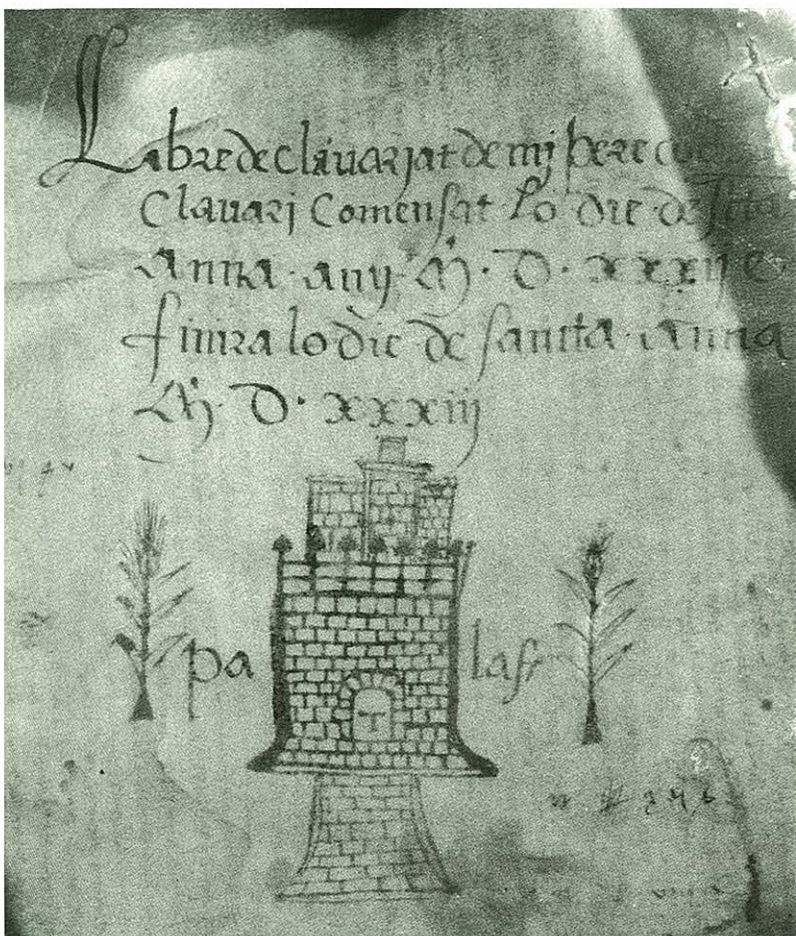 Libre de clavariat de mj pere
Clavari Comensat lo die de
Anna · any · M · D · xxxij e
finira lo die de sancta · anna
M · D · xxxiij
pa las